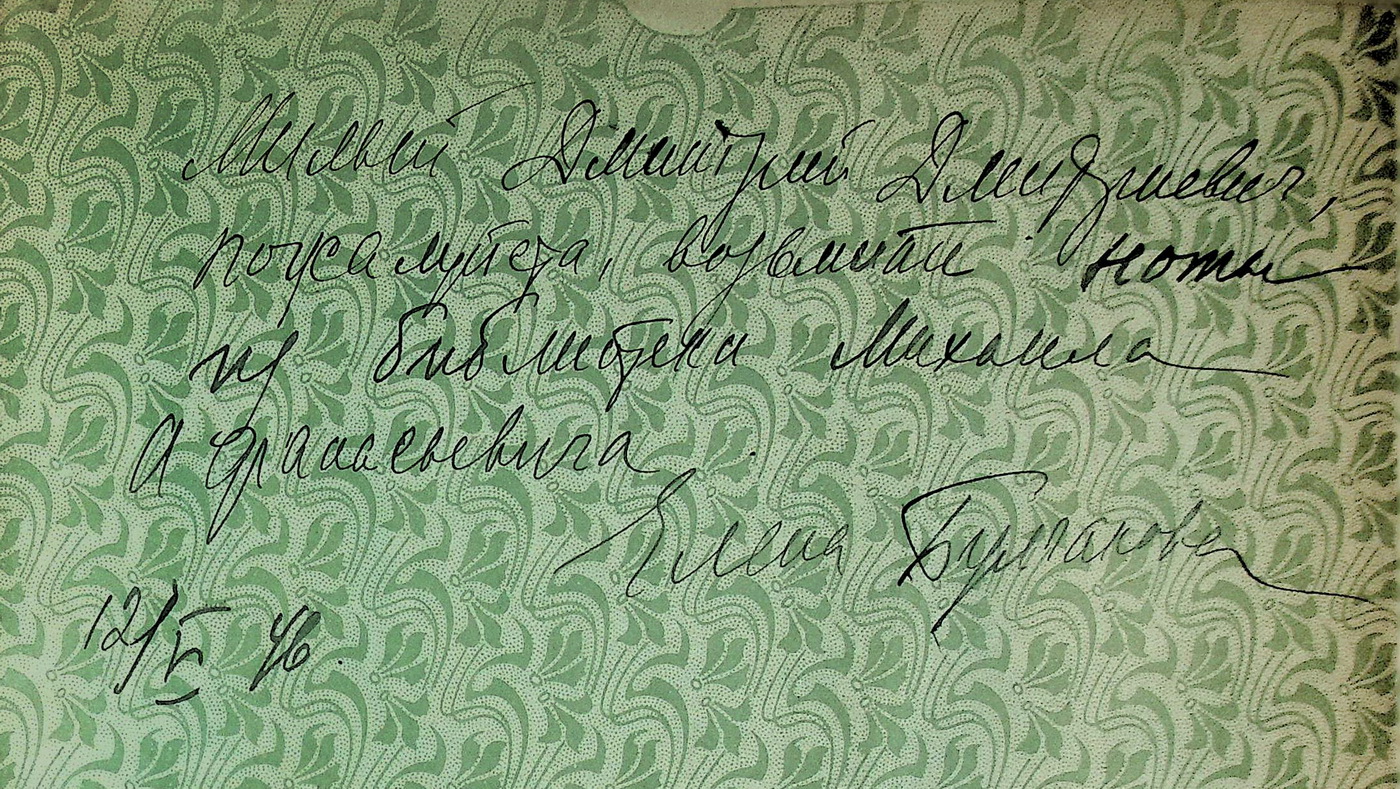 Милый Дмитрий Дмитриевич,
пожалуйста, возьмите ноты
из библиотеки Михаила
Афанасьевича
Елена Булгакова
12/V 46.